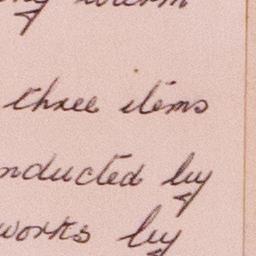 three items
nducted by
works by